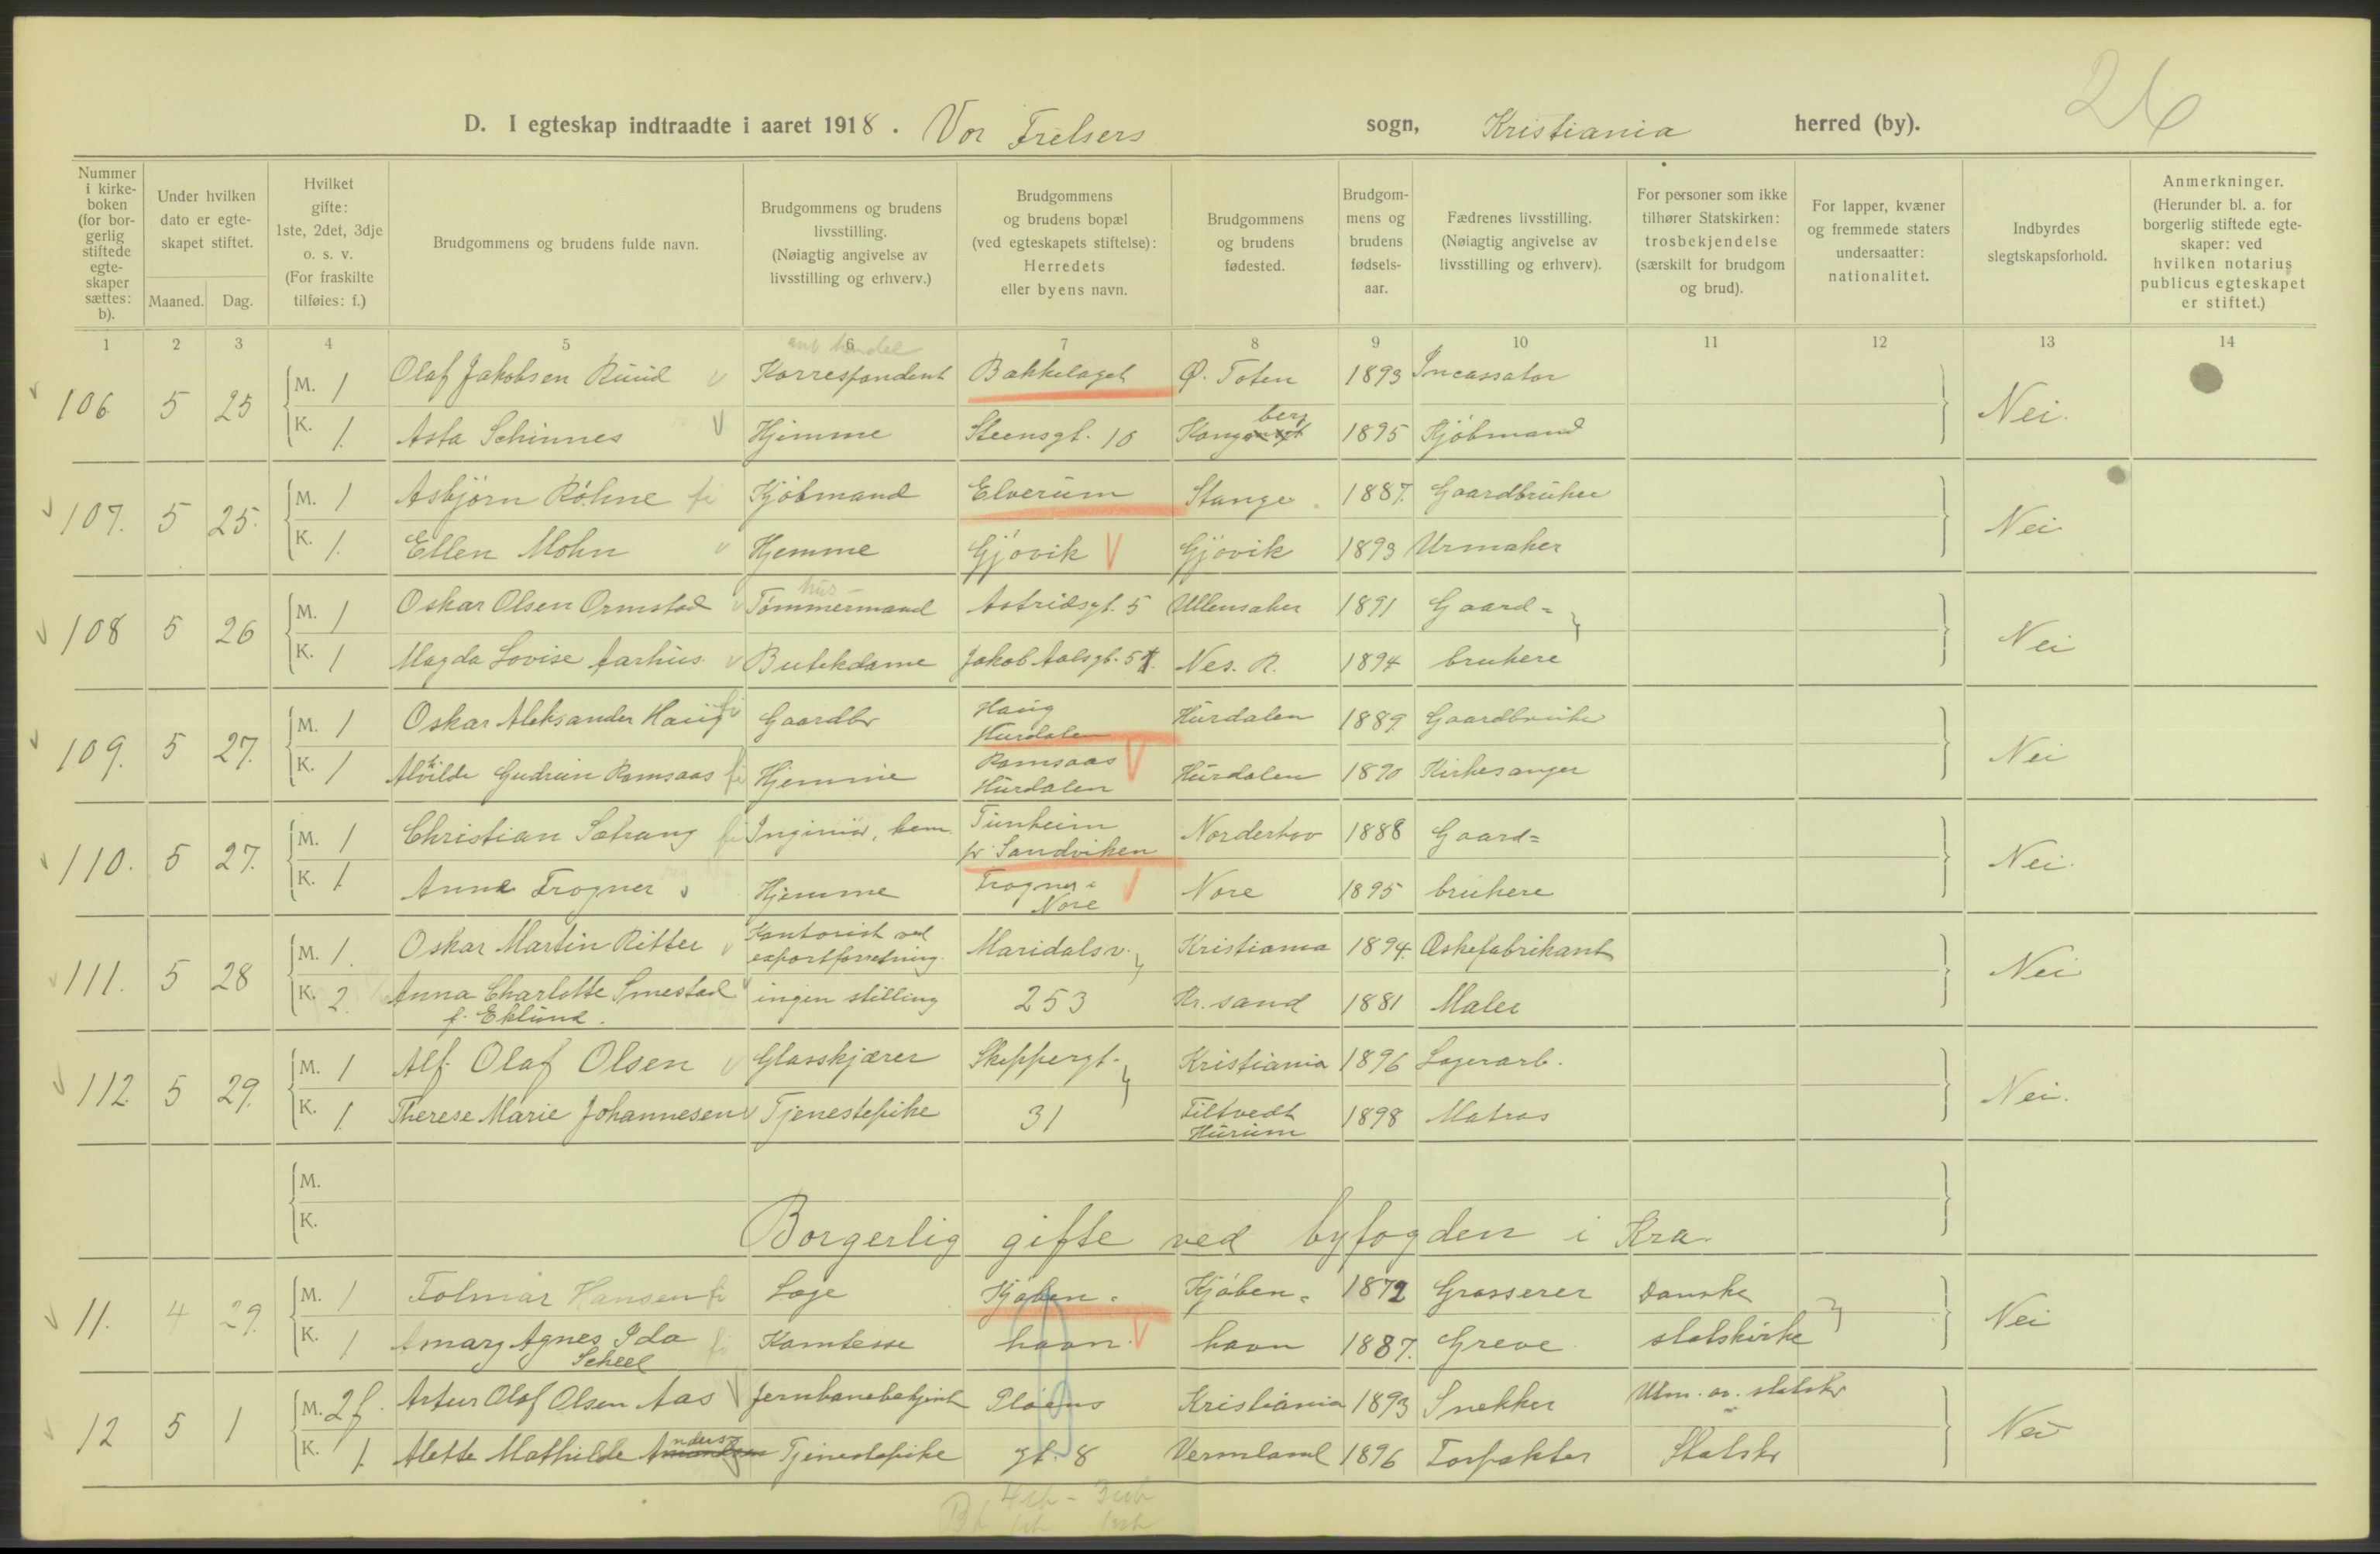 26
D. I egteskap indtraadte i aaret 1918. Vor Frelsers sogn, Kristiania herred (by).
Nummer i kirkeboken (for borgerlig stiftede egteskaper sættes: b).
Under hvilken dato er egteskapet stiftet.
Maaned. Dag.
Hvilket gifte: 1ste, 2det, 3dje o. s. v. (For fraskilte tilføies: f.)
Brudgommens og brudens fulde navn.
Brudgommens og brudens livsstilling. (Nøiagtig angivelse av livsstilling og erhverv.)
Brudgommens og brudens bopæl (ved egteskapets stiftelse): Herredets eller byens navn.
Brudgommens og brudens fødested.
Brudgommens og brudens fødselsaar.
Fædrenes livsstilling. (Nøiagtig angivelse av livsstilling og erhverv).
For personer som ikke tilhører Statskirken: trosbekjendelse (særskilt for brudgom og brud).
For lapper, kvæner og fremmede staters undersaatter: nationalitet.
Indbyrdes slegtskapsforhold.
Anmerkninger. (Herunder bl. a. for borgerlig stiftede egteskaper: ved hvilken notarius publicus egteskapet er stiftet.)
1 2 3 4 5 6 7 8 9 10 11 12 13 14
106 5 25 M. 1 Olaf Jakobsen Ruud Korrespondent Bakkelaget Ø. Toten 1893 Incassator Nei.
K. 1. Asta Schinnes Hjemme Steensgt. 10 Kongsberg 1895 Kjøbmand
107. 5 25. M. 1 Asbjørn Røhne fi Kjøbmand Elverum Stange 1887. Gaardbruker Nei
K. 1. Ellen Mohn Hjemme Gjøvik Gjøvik 1893 Urmaker
108 5 26 M. 1 Oskar Olsen Ormstad hus- Tømmermand Astridsgt. 5 Ullensaker 1891 Gaard= Nei
K. 1 Magda Lovise Aarhus Butikdame Jakob Aalsgt. 5 Nes. R. 1894 brukere
109. 5 27. M. 1 Oskar Aleksander Haug fi Gaardbr Haug Hurdalen Hurdalen 1889 Gaardbruker Nei
K. 1 Alvilde Gudrun Romsaas fi Hjemme Romsaas Hurdalen Hurdalen 1890 Kirkesanger
110. 5 27. M. 1 Christian Sætrang fi Inginiør, kem. Tunheim pr Sandviken Norderhov 1888 Gaard= Nei.
K. 1. Anna Trogner Hjemme Trogner i Nore Nore 1895 brukere
111. 5 28 M. 1. Oskar Martin Ritter Kontorist ved exportforretning. Maridalsv. Kristiania 1894. Æskefabrikant Nei
K. 2. Anna Charlotte Smestad f. Eklund. ingen stilling 253 Kr.sand 1881 Maler
112 5 29. M. 1 Alf Olaf Olsen Glasskjærer Skippergt. Kristiania 1896 Lagerarb. Nei.
K. 1. Therese Marie Johannesen Tjenestepike 31 Filtvedt Hurum 1898 Matros
M.
K.
Borgerlig gifte ved byfogden i Kra.
11. 4 29. M. 1 Folmar Hansen fi Læge Kjøben- Kjøben- 1872 Grosserer Danske Nei
K. 1 Amary Agnes Ida Scheel fi Komtesse havn. havn 1887. Greve statskirke
12 5 1 M. 2 f. Artur Olaf Olsen Aas Jernbanebetjent Pløens Kristiania 1893 Snekker Utm. av. statskr Nei
K. 1. Alette Mathilde Anders Tjenestepike gt. 8 Vermland 1896 Forpakter Statskr